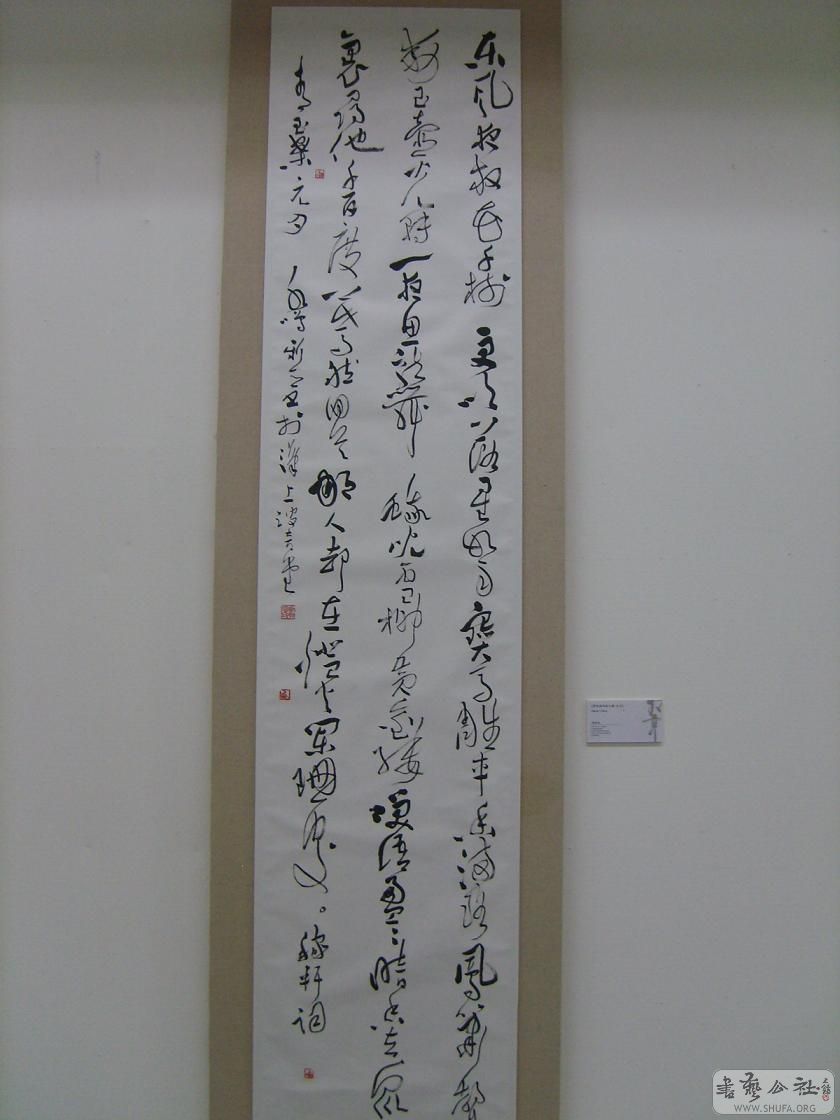 東風夜放花千樹 更吹落星如雨 寶馬雕車香滿路 鳳簫聲
動玉壺光轉一夜魚龍舞 蛾兒雪柳黃金縷 笑語盈盈暗香去 眾
裏尋他千百度 驀然回首 那人却在燈火闌珊處。稼軒詞
青玉案 元夕 於漢上
書藝公社
WWW.SHUFA.ORG